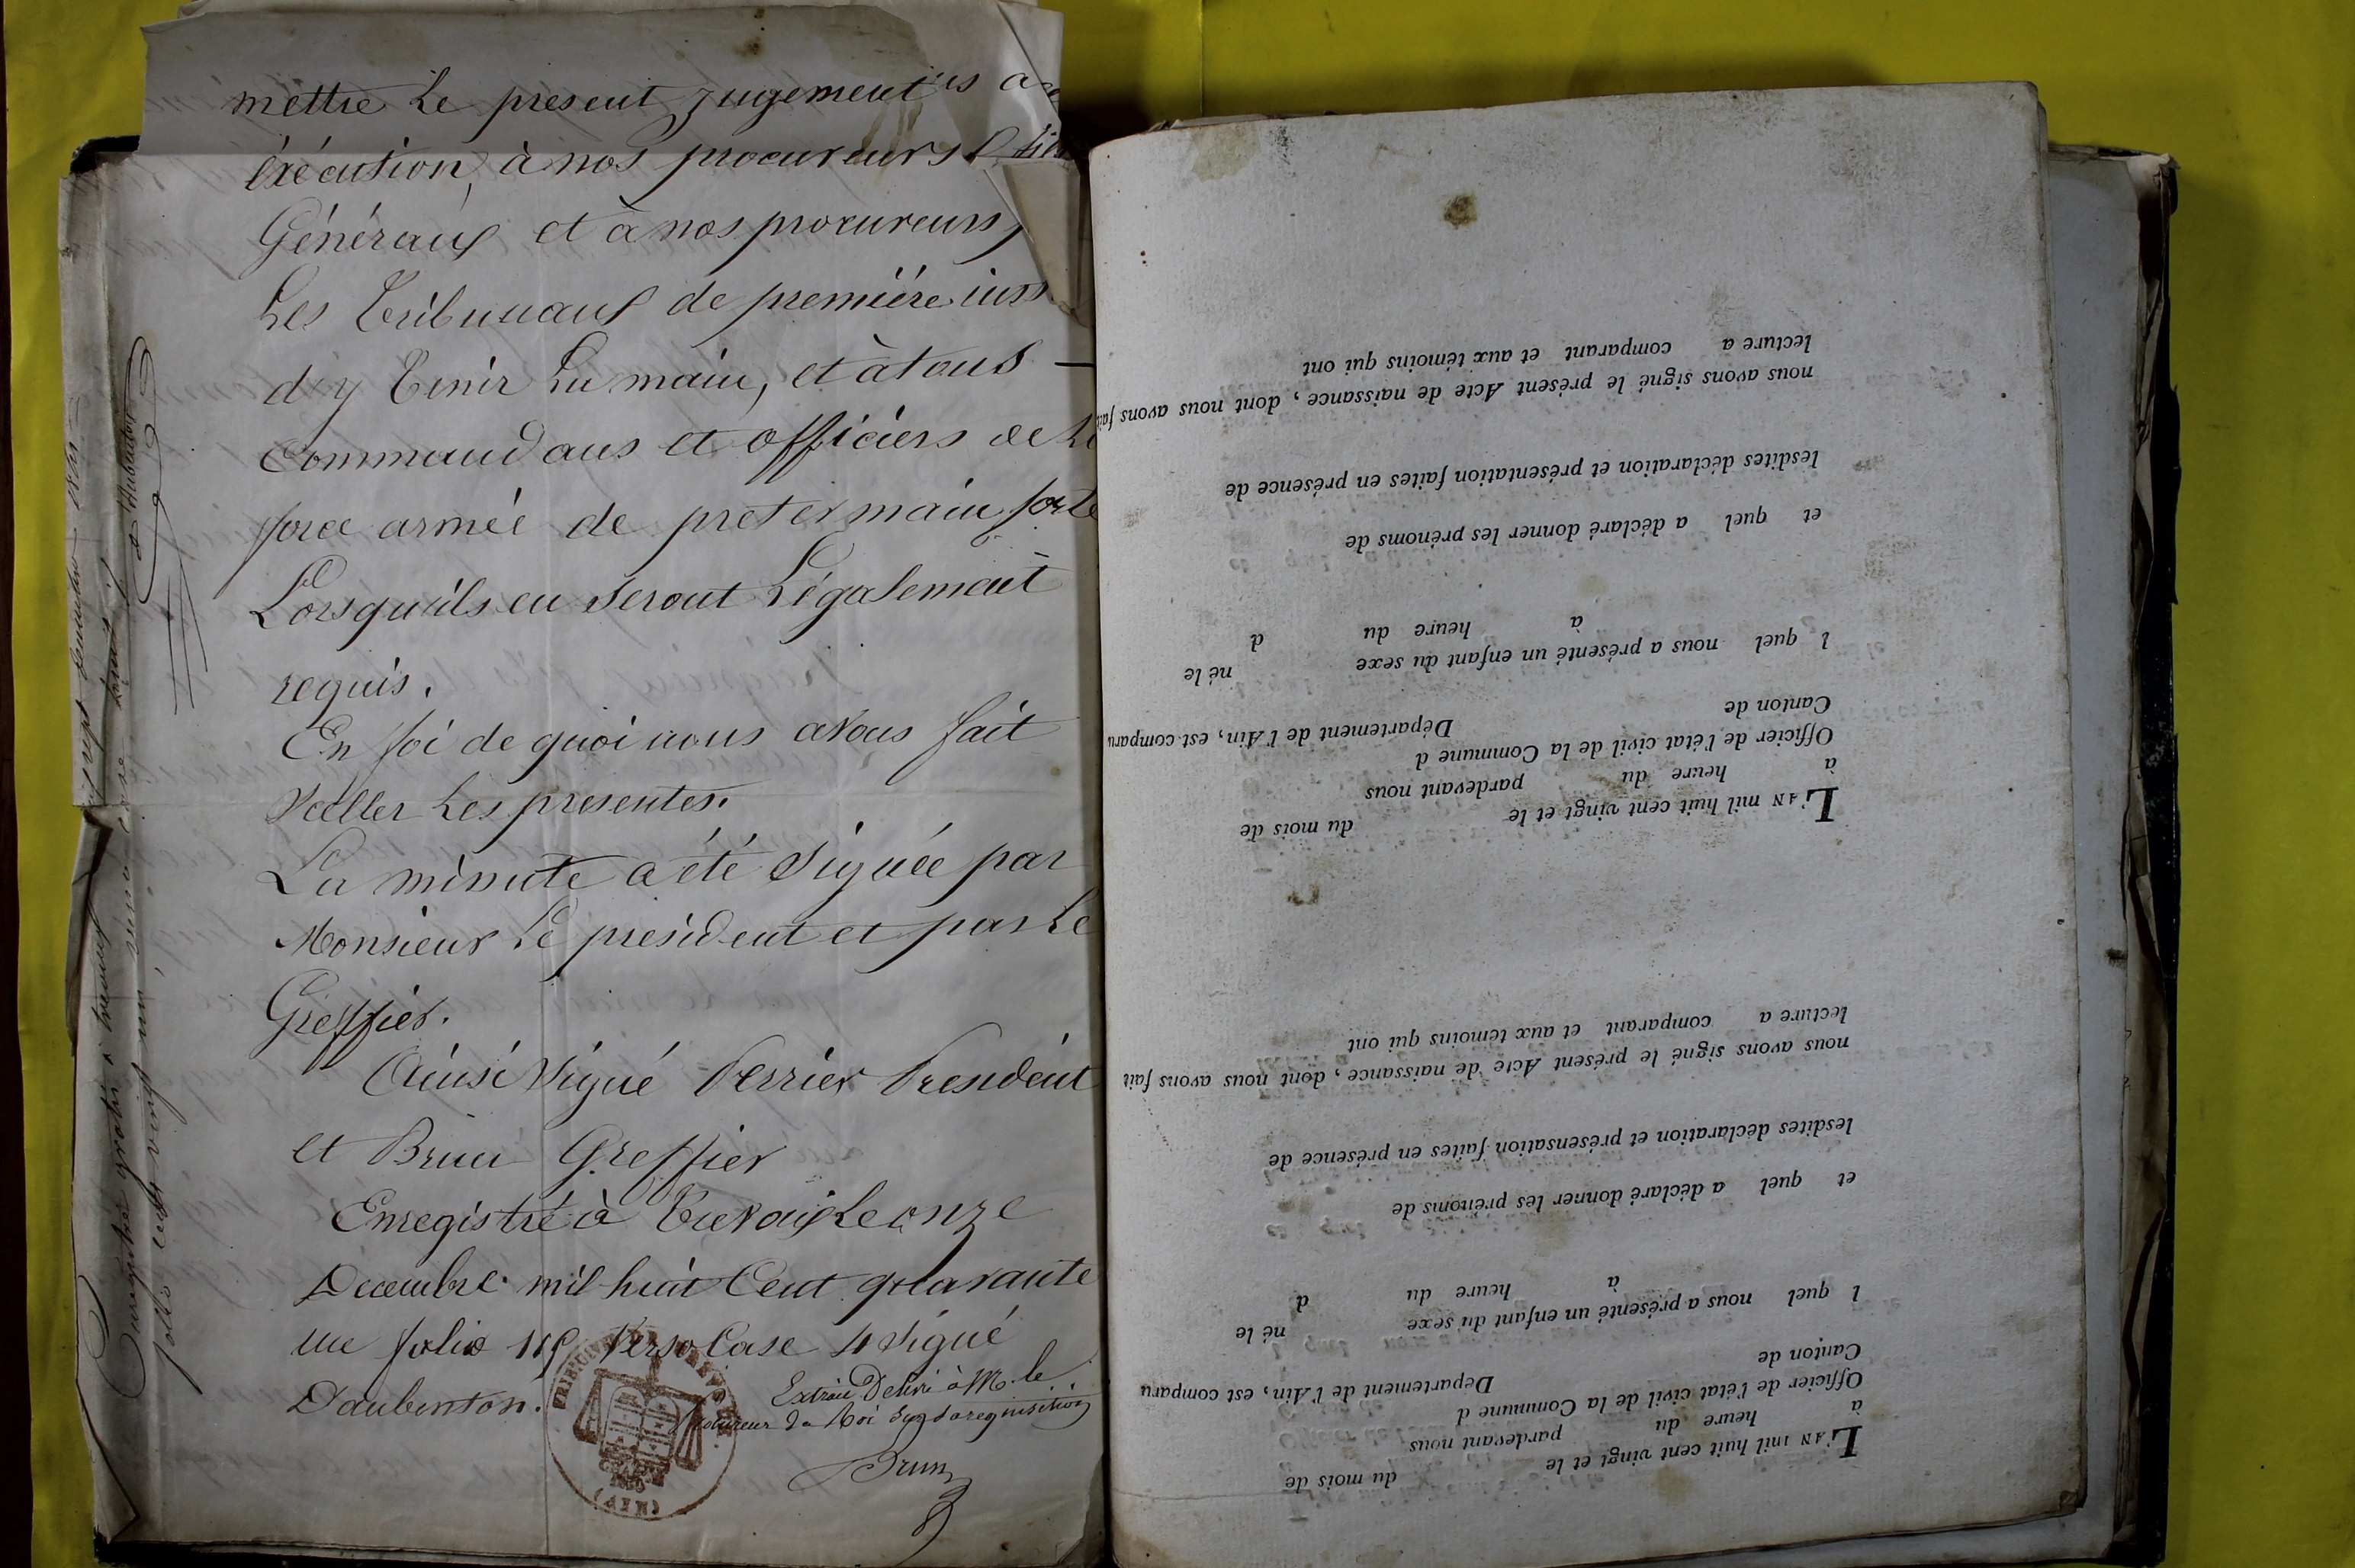 mettre Le present Jugement
éxécution, à nos procureurs
Généraux et à nos procureurs
Les Tribunaux de première ins
d'y Tenir La main, et à tous —
Commandans et officiers de La
force armée de preter main forte
Lorsqu'ils en seront Légalement
requis.
En foi de quoi nous avons fait
sceller Les presentes.
La minute a été signée par
Monsieur Le président et par Le
Greffier.
Ainsi signé Perrier Président
et Brun Greffier
Enregistré à Trevoux Le onze
Decembre mil huit Cent quarante
une folio 119 Verso Case 4 signé
Daubenton.
Extrait Delivré à Mr. le
Procureur du Roi sur sa requisition
Brun
(AIN)
Enregistré gratis à Trevoux
folio cent vingt
d'Aubenton
L'AN mil huit cent vingt et le du mois de
à heure du pardevant nous
Officier de l'état civil de la Commune d
Canton de Département de l'Ain, est comparu
l quel nous a présenté un enfant du sexe né le
à heure du d
et quel a déclaré donner les prénoms de
lesdites déclaration et présensation faites en présence de
nous avons signé le présent Acte de naissance, dont nous avons fait
lecture a comparant et aux témoins qui ont
L'AN mil huit cent vingt et le du mois de
à heure du pardevant nous
Officier de l'état civil de la Commune d
Canton de Département de l'Ain, est comparu
l quel nous a présenté un enfant du sexe né le
à heure du d
et quel a déclaré donner les prénoms de
lesdites déclaration et présentation faites en présence de
nous avons signé le présent Acte de naissance, dont nous avons fait
lecture a comparant et aux témoins qui ont